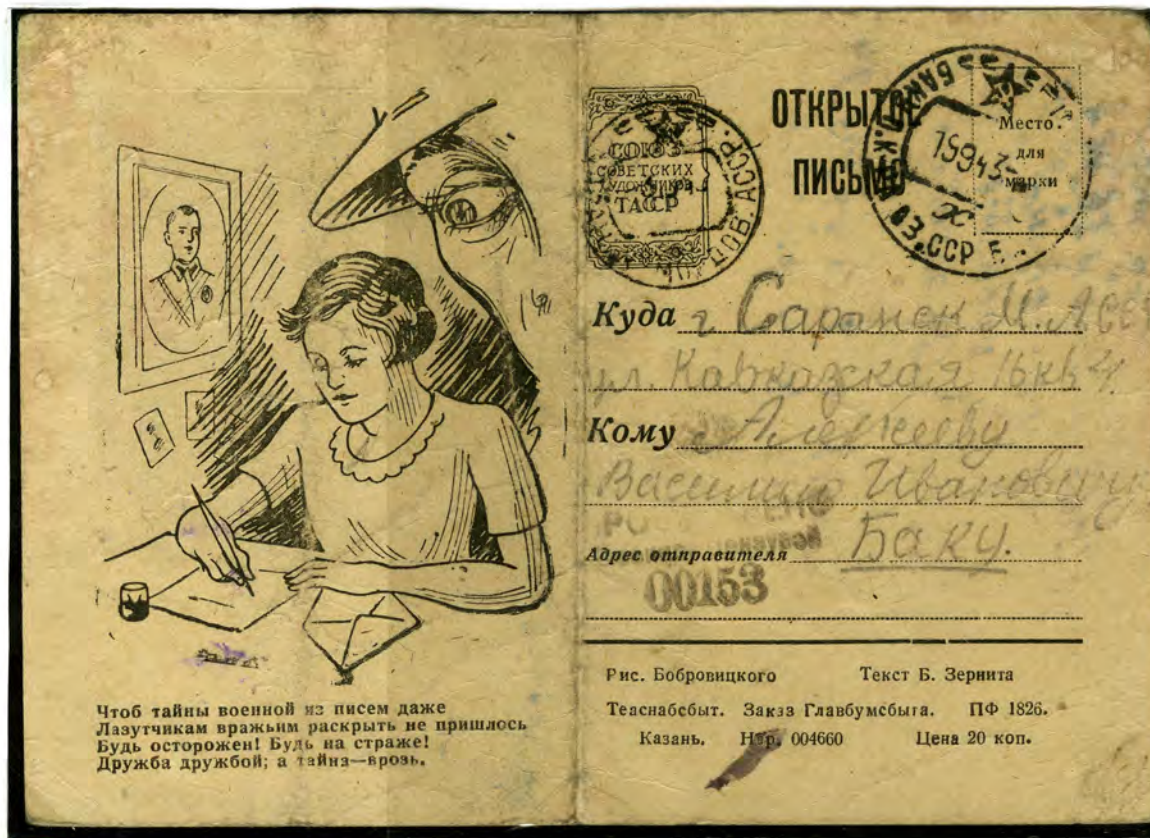 Чтоб тайны военной из писем даже
Лазутчикам вражьим раскрыть не пришлось
Будь осторожен! Будь на страже!
Дружба дружбой; а тайна—врозь.
СОЮЗ
СОВЕТСКИХ
ХУДОЖНИКОВ
ТАССР
ОТКРЫТОЕ
ПИСЬМО
Место
для
марки
БАКУ
15 9 43
АЗ.ССР Б
ПОВ. АССР
Куда г Саранск М. АСС
ул. Кавказская 16 кв 4.
Кому Алексееву
Василию Ивановичу
Адрес отправителя Баку.
00153
Рис. Бобровицкого Текст Б. Зернита
Теаснабсбыт. Заказ Главбумсбыта. ПФ 1826.
Казань. 004660 Цена 20 коп.